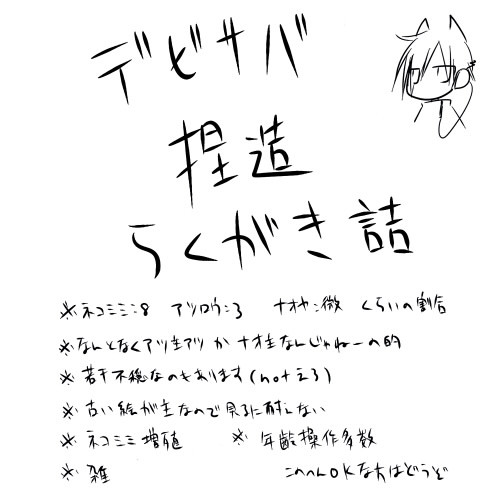 デビサバ
捏造
らくがき詰
※ネコミミ:8 アツロウ:3 ナオヤ:微 くらいの割合
※なんとなくアツ主アツか ナオ主なんじゃねーの的
※若干不穏なのもあります(notエロ)
※古い絵が主なので見るに耐えない
※ネコミミ増殖 ※年齢操作多数
※雑 このへんOKな方はどうぞ